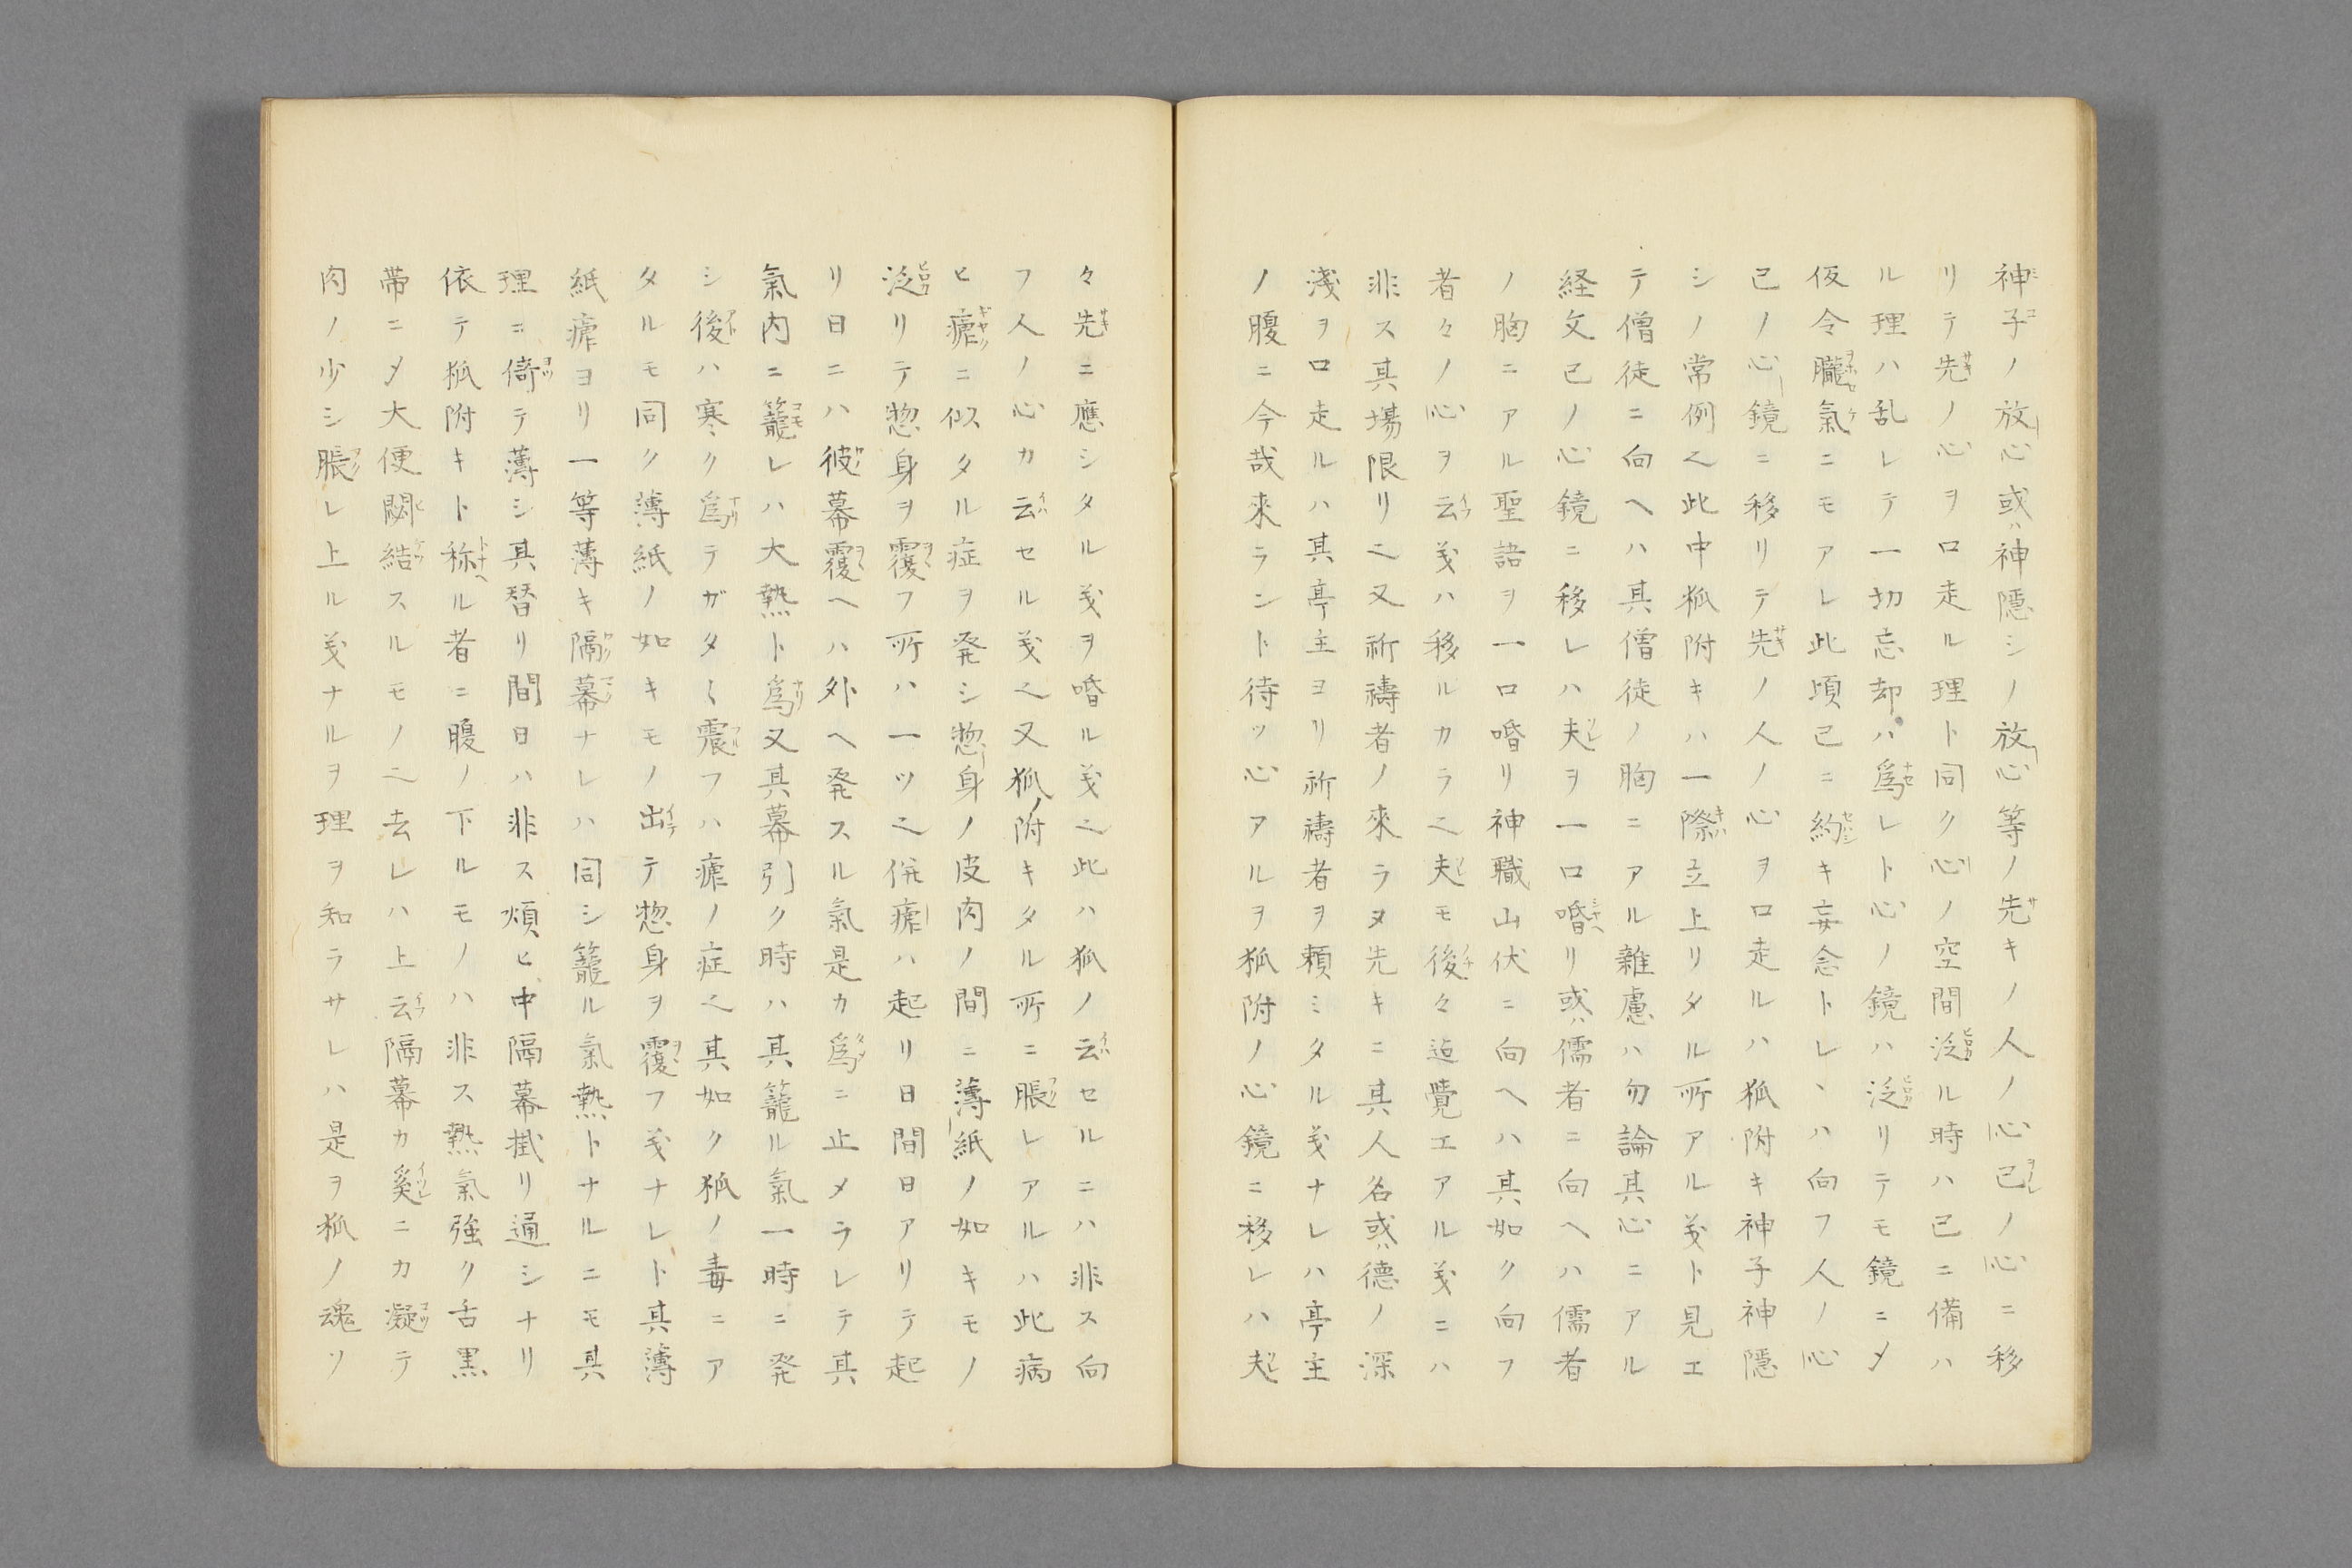 神子ノ放心或ハ神隠シノ放心等ノ先キノ人ノ心己ノ心ニ移
リテ先ノ心ヲ口走ル理ト同ク心ノ空間泛ル時ハ己ニ備ハ
ル理ハ乱レテ一切忘却ハ為レト心ノ鏡ハ泛リテモ鏡ニメ
仮令朧氣ニモアレ此頃己ニ約キ妄念トレヽハ向フ人ノ心
己ノ心鏡ニ移リテ先ノ人ノ心ヲ口走ルハ狐附キ神子神隠
シノ常例也此中狐附キハ一際立上リタル所アル義ト見エ
テ僧徒ニ向ヘハ其僧徒ノ胸ニアル雑慮ハ勿論其心ニアル
経文己ノ心鏡ニ移レハ夫ヲ一口㗃リ或ハ儒者ニ向ヘハ儒者
ノ胸ニアル聖語ヲ一口㗃リ神職山伏ニ向ヘハ其如ク向フ
者々ノ心ヲ云義ハ移ルカラ也夫モ後々迠覺エアル義ニハ
非ス其場限リ也又祈禱者ノ來ラヌ先キニ其人名或ハ徳ノ深
淺ヲ口走ルハ其亭主ヨリ祈禱者ヲ頼ミタル義ナレハ亭主
ノ腹ニ今哉來ラント待ッ心アルヲ狐附ノ心鏡ニ移レハ夫
々先ニ應シタル義ヲ㗃ル義也此ハ狐ノ云セルニハ非ス向
フ人ノ心カ云セル義也又狐ノ附キタル所ニ脹レアルハ此病
ヒ瘧ニ似タル症ヲ発シ惣身ノ皮肉ノ間ニ薄紙ノ如キモノ
泛リテ惣身ヲ覆フ所ハ一ツ也併瘧ハ起リ日間日アリテ起
リ日ニハ彼幕覆ヘハ外ヘ発スル氣是カ為ニ止メラレテ其
氣内ニ籠レハ大熱ト為又其幕引ク時ハ其籠ル氣一時ニ発
シ後ハ寒ク為テガタ〱震フハ瘧ノ症也其如ク狐ノ毒ニア
タルモ同ク薄紙ノ如キモノ出テ惣身ヲ覆フ義ナレト其薄
紙瘧ヨリ一等薄キ隔幕ナレハ同シ籠ル氣熱トナルニモ其
理ニ倚テ薄シ其替リ間日ハ非ス煩ヒ中隔幕掛リ通シナリ
依テ狐附キト称ル者ニ腹ノ下ルモノハ非ス熱氣強ク舌黒
帯ニメ大便閟結スルモノ也去レハ上云隔幕カ奚ニカ凝テ
肉ノ少シ脹レ上ル義ナルヲ理ヲ知ラサレハ是ヲ狐ノ魂ソ